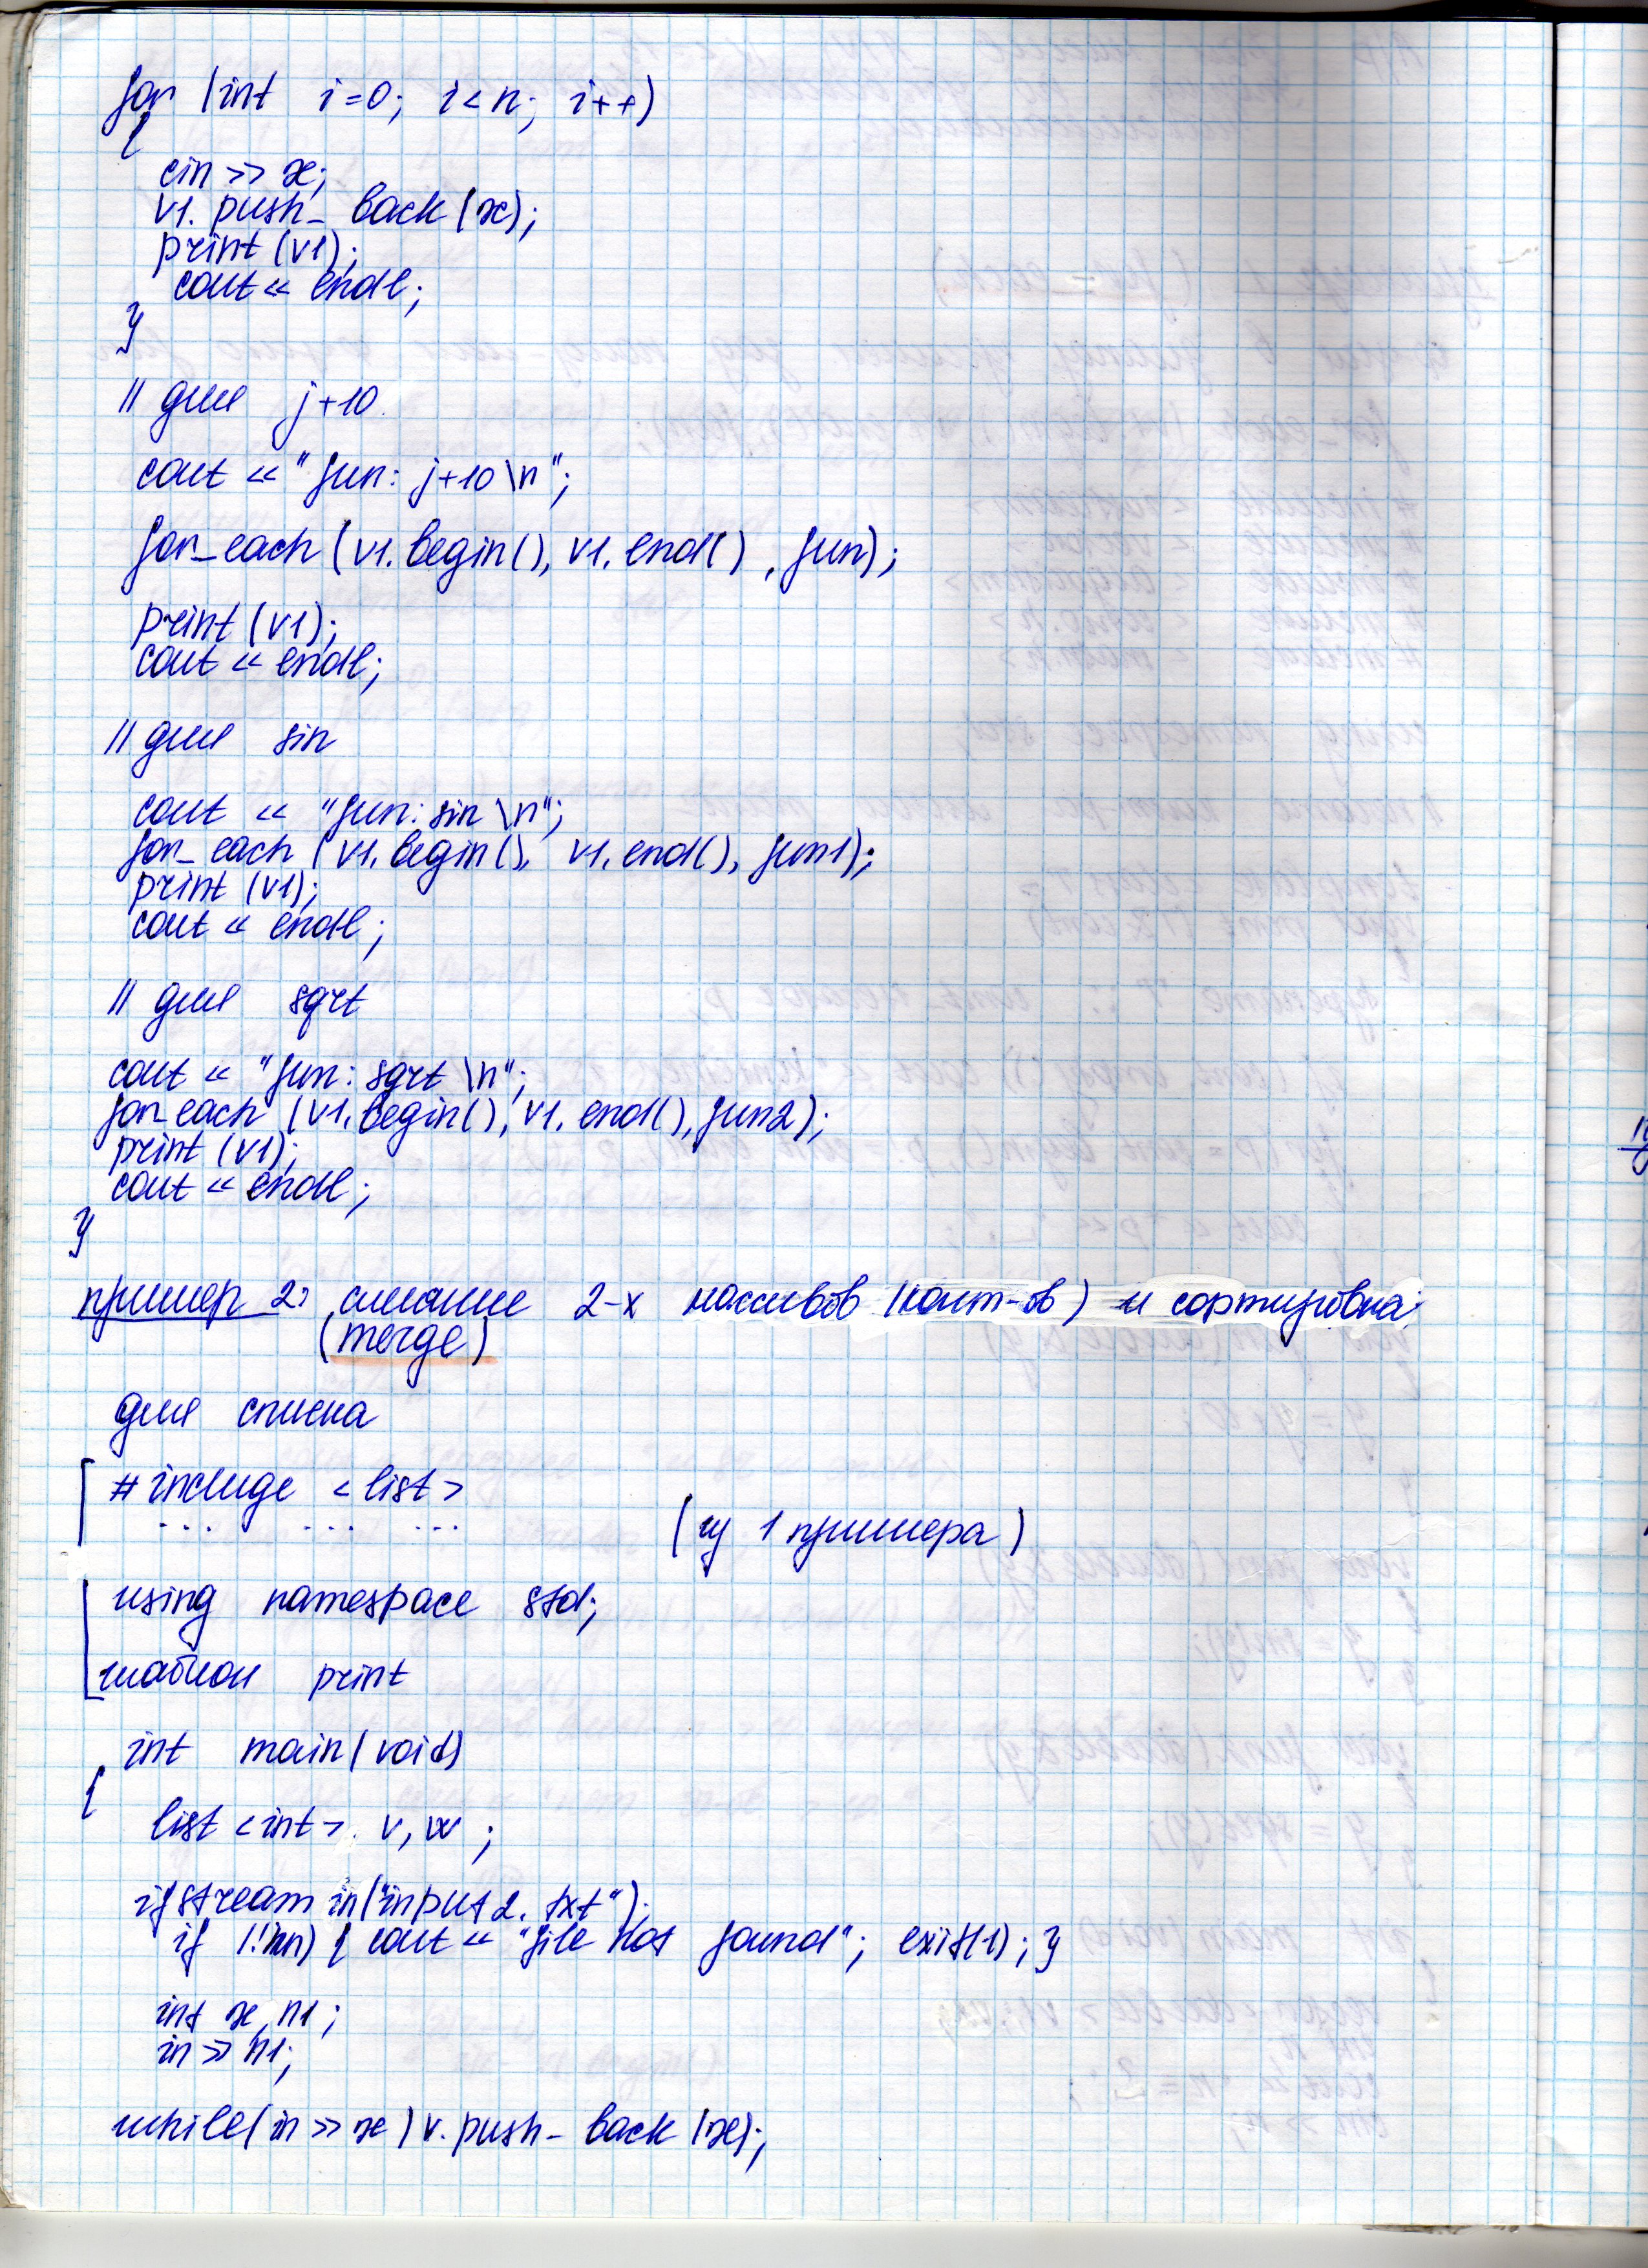 for (int i=0; i<n; i++)
{
cin >> x;
v1.push_back(x);
print(v1);
cout << endl;
}
// для j+10
cout << "fun: j+10 \n";
for_each (v1.begin(), v1.end(), fun);
print (v1);
cout << endl;
// для sin
cout << "fun: sin \n";
for_each (v1.begin(), v1.end(), fun1);
print (v1);
cout << endl;
// для sqrt
cout << "fun: sqrt \n";
for_each (v1.begin(), v1.end(), fun2);
print (v1);
cout << endl;
}
пример 2: слияние 2-х массивов (конт-ов) и сортировка:
(merge)
для списка
# include <list>
... ... ...
(из 1 примера)
using namespace std;
шаблон print
int main(void)
{
list <int> v, w;
ifstream in("input2.txt");
if (!in) { cout << "file not found"; exit(1); }
int x, n1;
in >> n1;
while(in >> x) v.push_back(x);